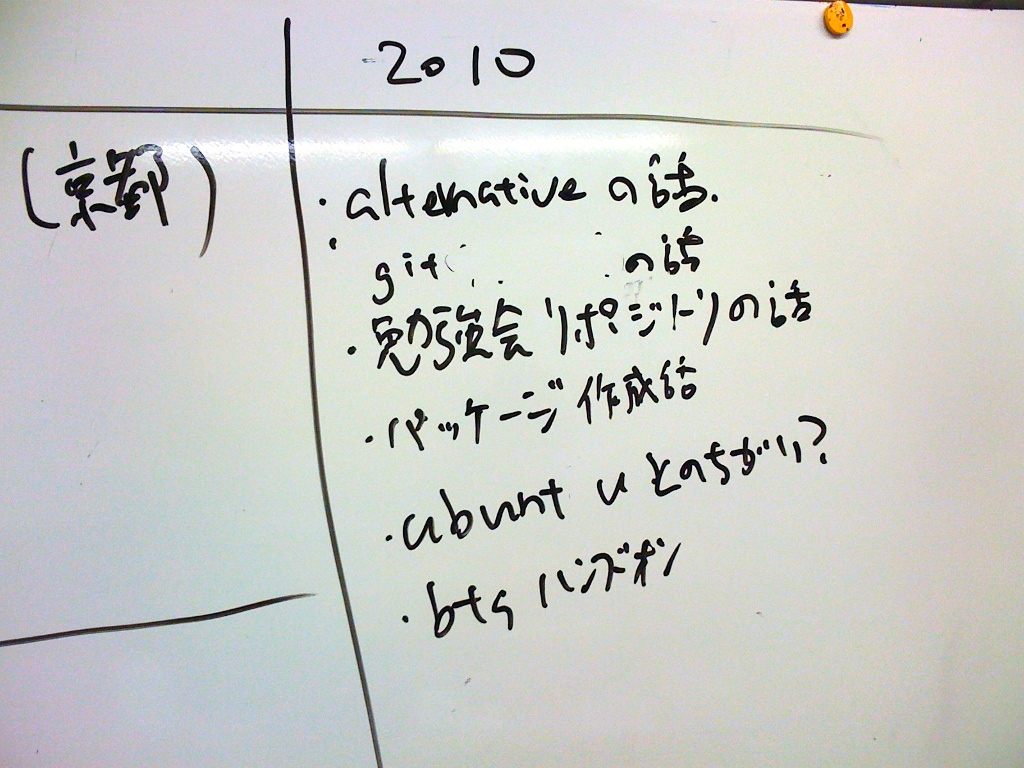 2010
(京都)
・alternative の話.
・git の話
・勉強会リポジトリの話
・パッケージ作成話
・ubuntu とのちがい?
・bts ハンズオン